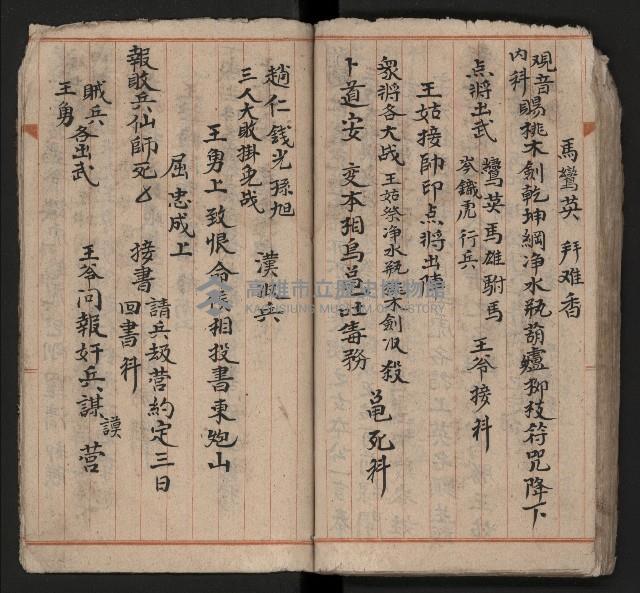 馬鸞英 拜难香
观音賜桃木劍乾坤網净水瓶葫蘆柳枝符咒降下
内科
点將出武 鸞英馬雄駙馬 王爷接科
岑鐵虎行兵
王姑接帥印点將出
衆將各大战 王姑祭净水瓶 木劍 殺
卜道安 変本相鸟 吐毒務 死科
趙仁錢光孫旭 漢 兵
三人大敗掛免战
王勇上致恨命 相投書東 山
屈忠成上
報敗兵仙師死 接書 請兵劫营約定三日
回書科
賊兵各出武 王爷问報奸兵謀 营
王勇
謨
高雄市立歷史博物館
KAOHSIUNG MUSEUM OF HISTORY